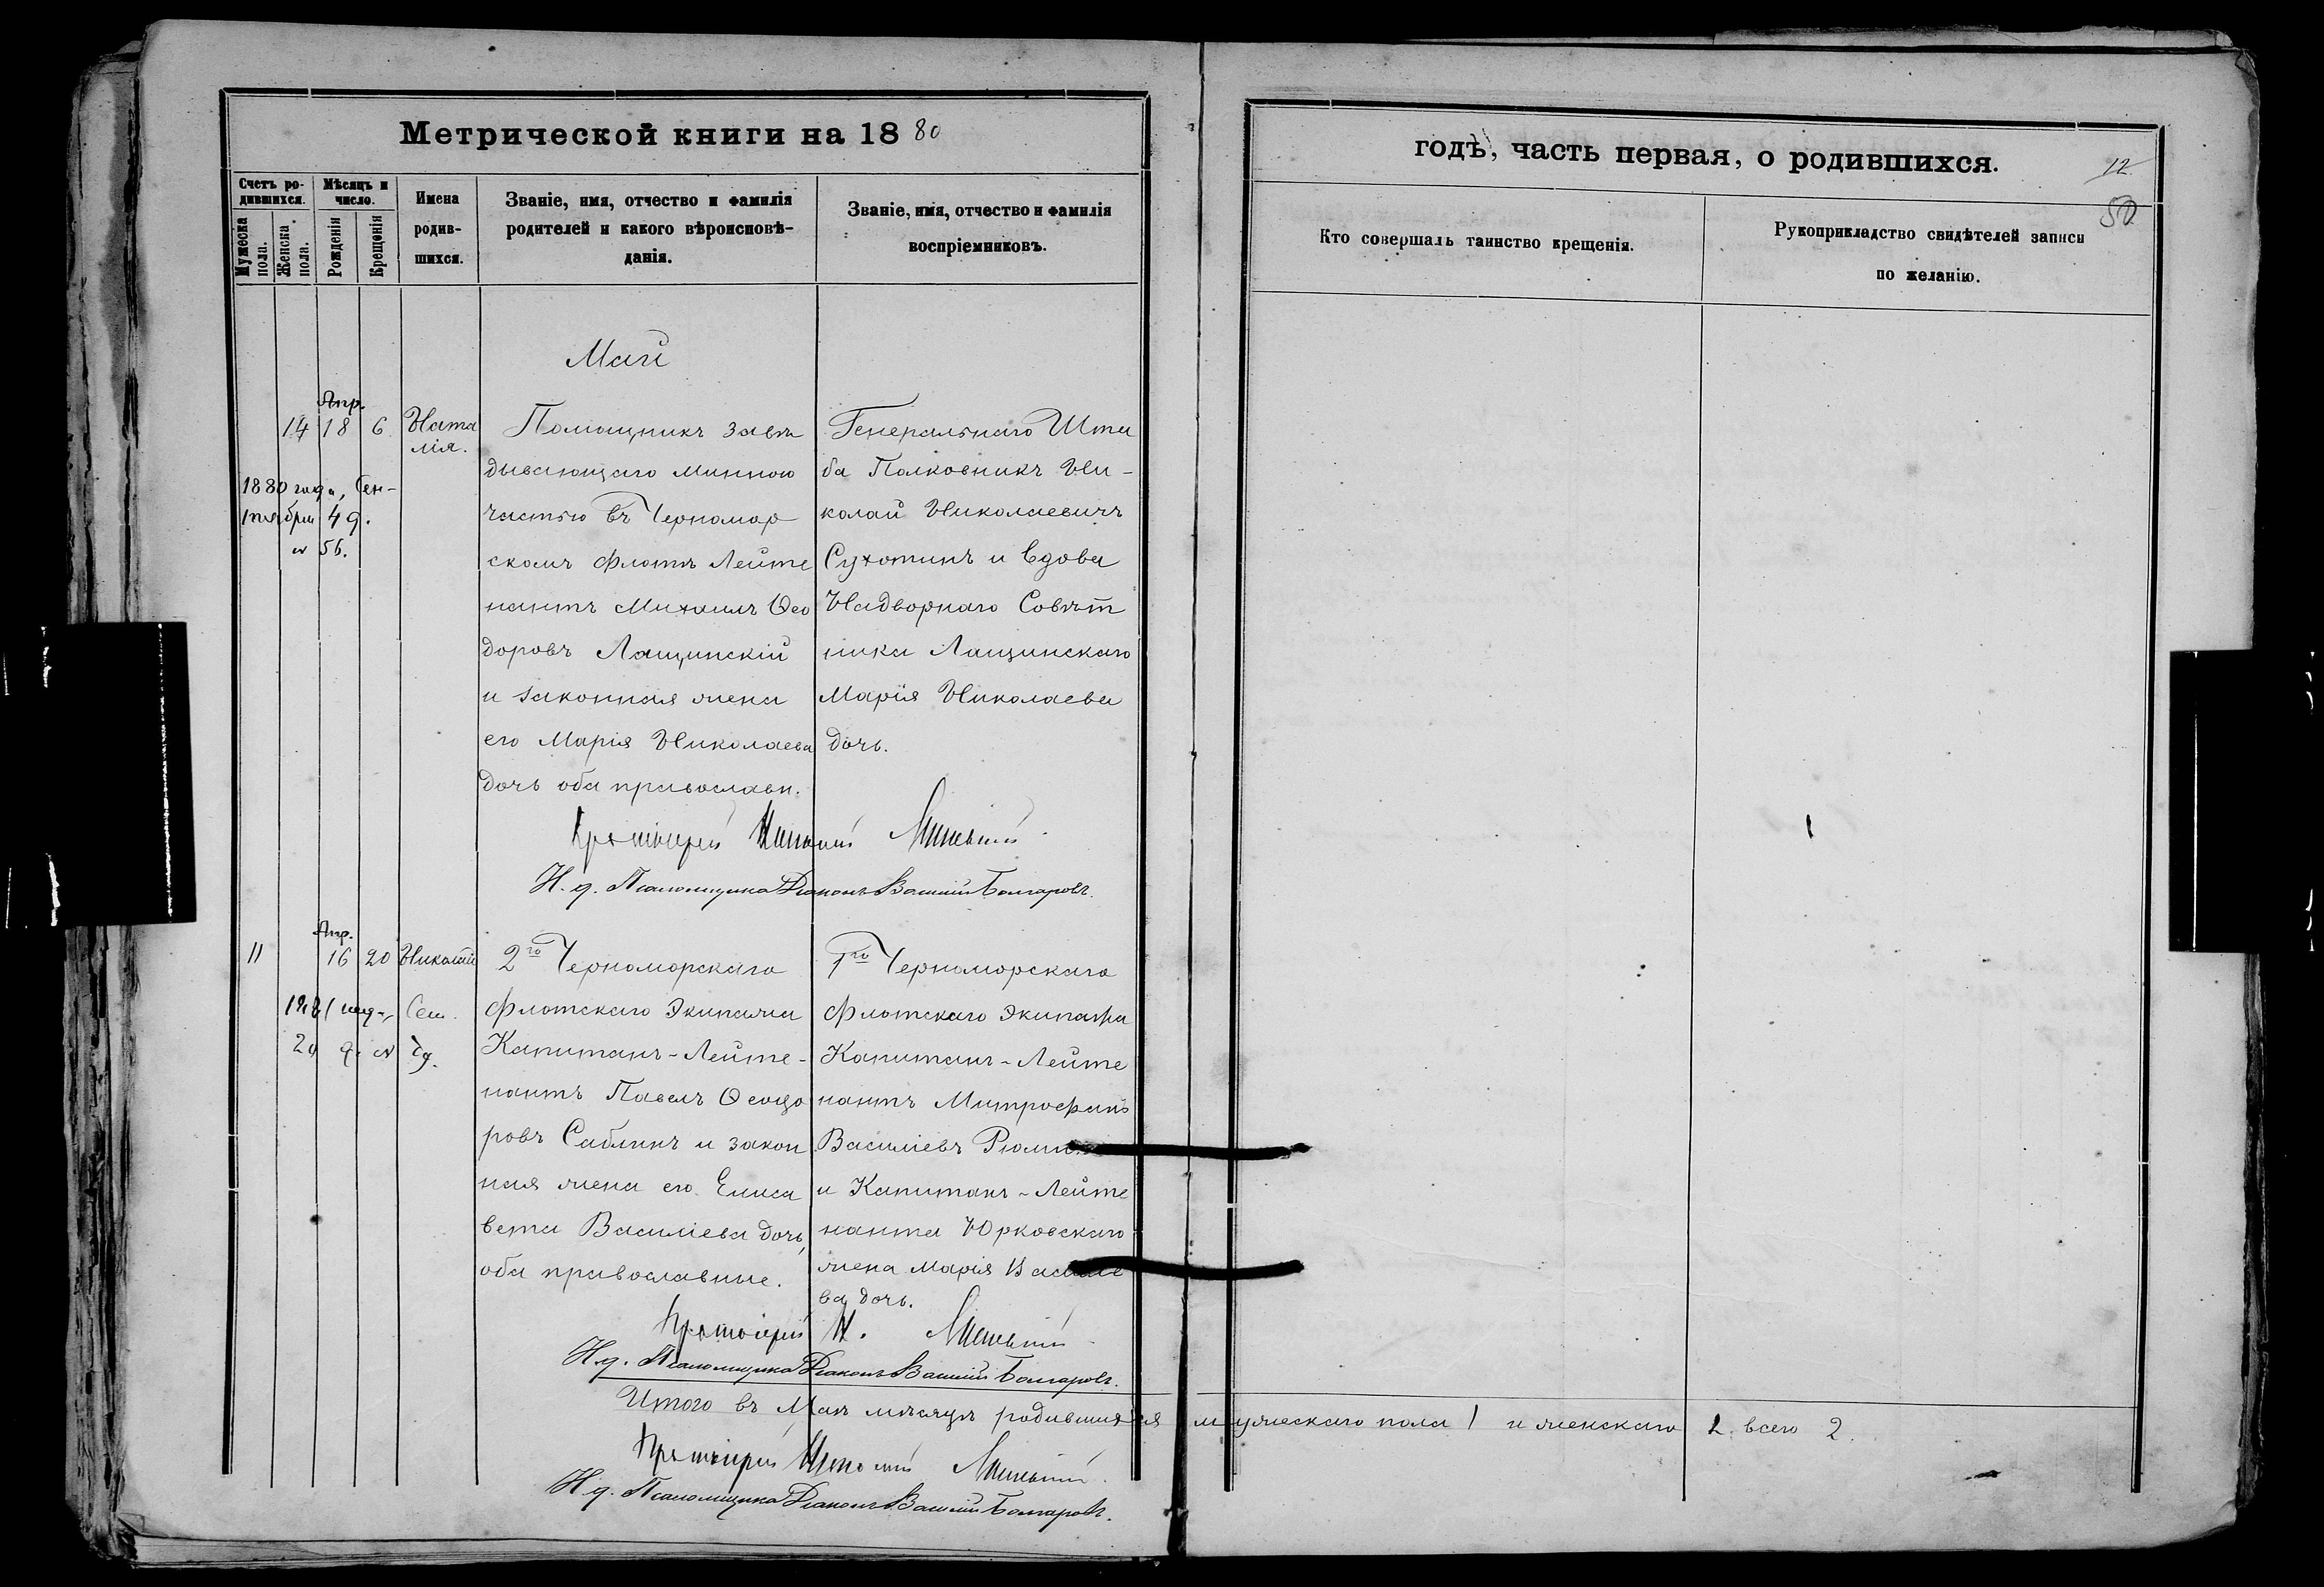 Метрической книги на 18 80
Счетъ ро-
дившихся.
Мужеска
пола.
Женска
пола.
Мѣсяцъ и
число.
Рожденія
Крещенія
Имена
родив-
шихся.
Званіе, имя, отчество и фамилія
родителей и какого вѣроисповѣ-
данія.
Званіе, имя, отчество и фамилія
воспріемниковъ.
годѣ, часть первая, о родившихся.
12
50
Кто совершалъ таинство крещенія.
Рукоприкладство свидѣтелей записи
по желанію.
Май
Апр.
14 18 6
Ната
лія.
1880 года, Сен-
тября 4 д.
№ 56.
Помощникъ завѣ
дывающаго минною
частью въ Черномор
скомъ флотѣ Лейте
нантъ Михаилъ Ѳео
доровъ Лащинскій
и законная жена
его Марія Николаева
дочь оба православн.
Генеральнаго Шта
ба Полковникъ Ни-
колай Николаевичъ
Сухотинъ и вдова
Надворнаго Совѣт
ника Лащинскаго
Марія Николаева
дочь.
Протоіерей
И. д. Псаломщика Діаконъ Василій Болгаровъ.
Апр.
11 16 20 Николай
2го Черноморскаго
флотскаго Экипажа
Капитанъ-Лейте-
нантъ Павелъ Ѳеодо
ровъ Саблинъ и закон
ная жена его Елиса
вета Василіева дочь,
оба православные.
1го Черноморскаго
флотскаго экипажа
Капитанъ-Лейте
нантъ Митрофанъ
Василіевъ
и Капитанъ-Лейте
нанта Юрковскаго
жена Марія Василіе
ва дочь.
Протоіерей
И. д. Псаломщика Діаконъ Василій Болгаровъ.
Итого въ Маѣ мѣсяцѣ родившихся мужескаго пола 1 и женскаго 1 всего 2.
Протоіерей
И. д. Псаломщика Діаконъ Василій Болгаровъ.